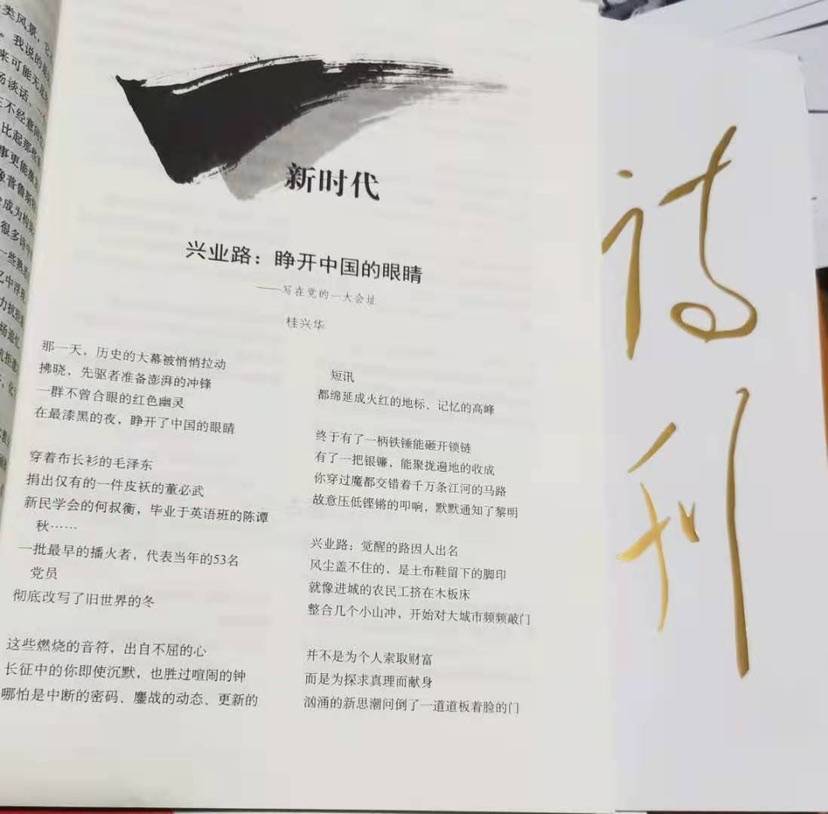 新时代
兴业路：睁开中国的眼睛
——写在党的一大会址
桂兴华
那一天，历史的大幕被悄悄拉动
拂晓、先驱者准备澎湃的冲锋
一群不曾合眼的红色幽灵
在最漆黑的夜，睁开了中国的眼睛
穿着布长衫的毛泽东
捐出仅有的一件皮袄的董必武
新民学会的何叔衡，毕业于英语班的陈谭
秋……
一批最早的播火者，代表当年的53名
党员
彻底改写了旧世界的冬
这些燃烧的音符，出自不屈的心
长征中的你即使沉默，也胜过喧闹的钟
哪怕是中断的密码、鏖战的动态、更新的
短讯
都绵延成火红的地标、记忆的高峰
终于有了一柄铁锤能砸开锁链
有了一把银镰，能聚拢遍地的收成
你穿过魔都交错着千万条江河的马路
故意压低铿锵的叩响，默默通知了黎明
兴业路：觉醒的路因人出名
风尘盖不住的、是土布鞋留下的脚印
就像进城的农民工挤在木板床
整合几个小山冲，开始对大城市频频敲门
并不是为个人索取财富
而是为探求真理而献身
汹涌的新思潮问倒了一道道板着脸的门
诗刊